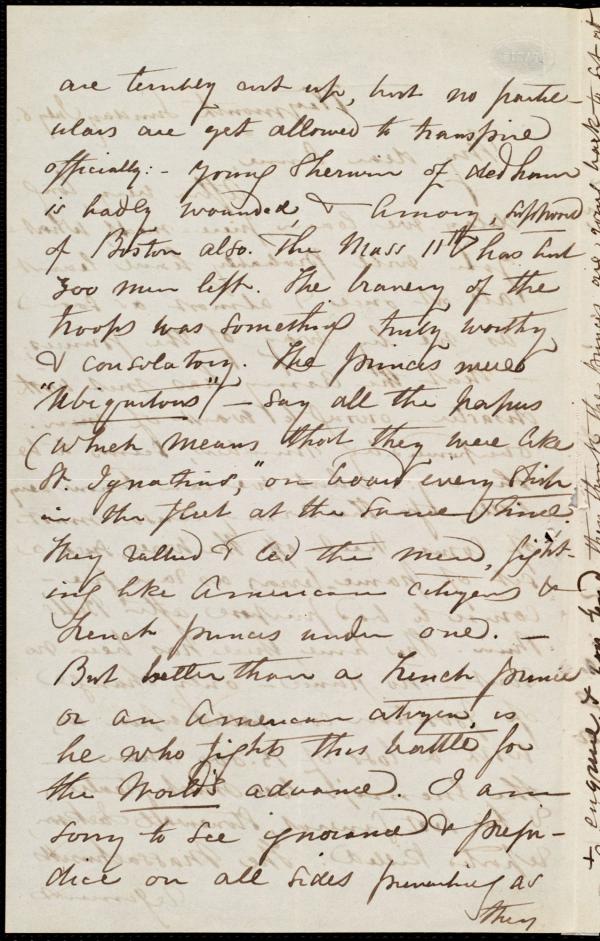 are terribly cut up, but no partic-
ulars are yet allowed to transpire
officially:- Young Sherwin of dedham
is badly wounded, & Amory,
of Boston also. The Mass 11th has but
300 men left. The bravery of the
troops was something truly worthy
& consolatory. The princes were
"Ubiquitous" - say all the papers
(which means that they were like
St. Ignatius, "on board every ship
in the fleet at the same time."
They rallied & led the men, fight-
ing like American citizens &
French princes under one. -
But better than a French prince
or an American citizen, is
he who fights this battle for
the World's advance. I am
sorry to see ignorance & preju-
dice on all sides preventing as
they
& you think the princes are going back to